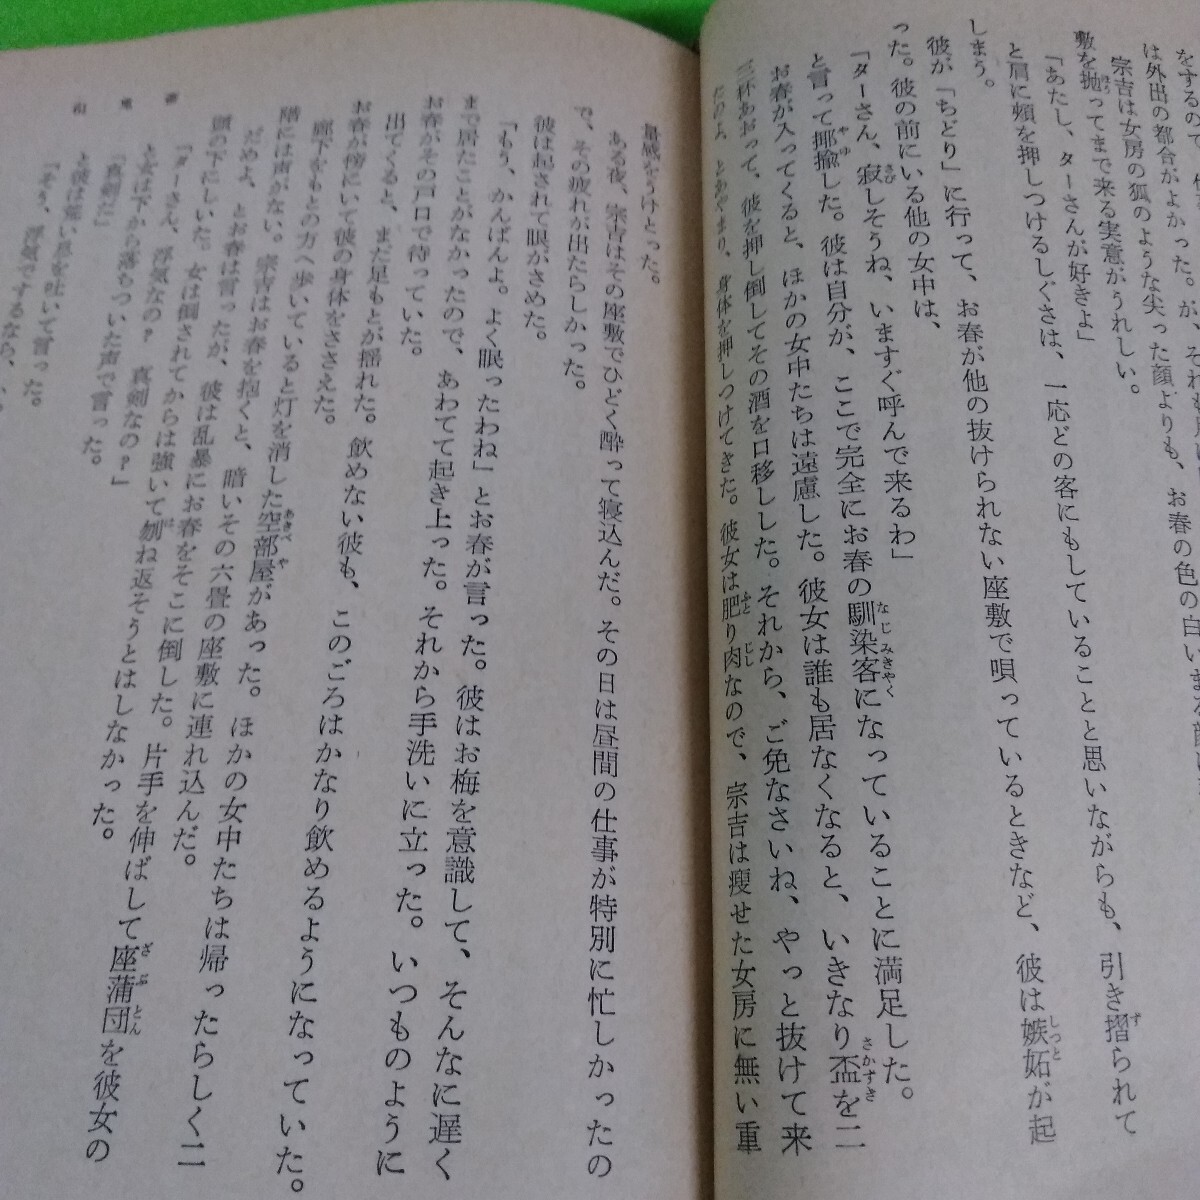 をするので、
は外出の都合がよかった。が、それも
宗吉は女房の狐のような尖った顔よりも、お春の色の白い
敷を抛ってまで来る実意がうれしい。
「あたし、ターさんが好きよ」
と肩に頬を押しつけるしぐさは、一応どの客にもしていることと思いながらも、引き摺られて
しまう。
彼が「ちどり」に行って、お春が他の抜けられない座敷で唄っているときなど、彼は嫉妬が起
った。彼の前にいる他の女中は、
「ターさん、寂しそうね、いますぐ呼んで来るわ」
と言って揶揄した。彼は自分が、ここで完全にお春の馴染客になっていることに満足した。
お春が入ってくると、ほかの女中たちは遠慮した。彼女は誰も居なくなると、いきなり盃を二
三杯あおって、彼を押し倒してその酒を口移しした。それから、ご免なさいね、やっと抜けて来
たのよ、とあやまり、身体を押しつけてきた。彼女は肥り肉なので、宗吉は痩せた女房に無い重
量感をうけとった。
ある夜、宗吉はその座敷でひどく酔って寝込んだ。その日は昼間の仕事が特別に忙しかったの
で、その疲れが出たらしかった。
彼は起されて眼がさめた。
「もう、かんばんよ。よく眠ったわね」とお春が言った。彼はお梅を意識して、そんなに遅く
まで居たことがなかったので、あわてて起き上った。それから手洗いに立った。いつものように
お春がその戸口で待っていた。
出てくると、まだ足もとが揺れた。飲めない彼も、このごろはかなり飲めるようになっていた。
お春が傍にいて彼の身体をささえた。
廊下をもとの方へ歩いていると灯を消した空部屋があった。ほかの女中たちは帰ったらしく二
階には声がない。宗吉はお春を抱くと、暗いその六畳の座敷に連れ込んだ。
だめよ、とお春は言ったが、彼は乱暴にお春をそこに倒した。片手を伸ばして座蒲団を彼女の
頭の下にしいた。女は倒されてからは強いて刎ね返そうとはしなかった。
「ターさん、浮気なの? 真剣なの?」
と女は下から落ちついた声で言った。
「真剣だ」
と彼は荒い息を吐いて言った。
「そう、浮気でするなら、